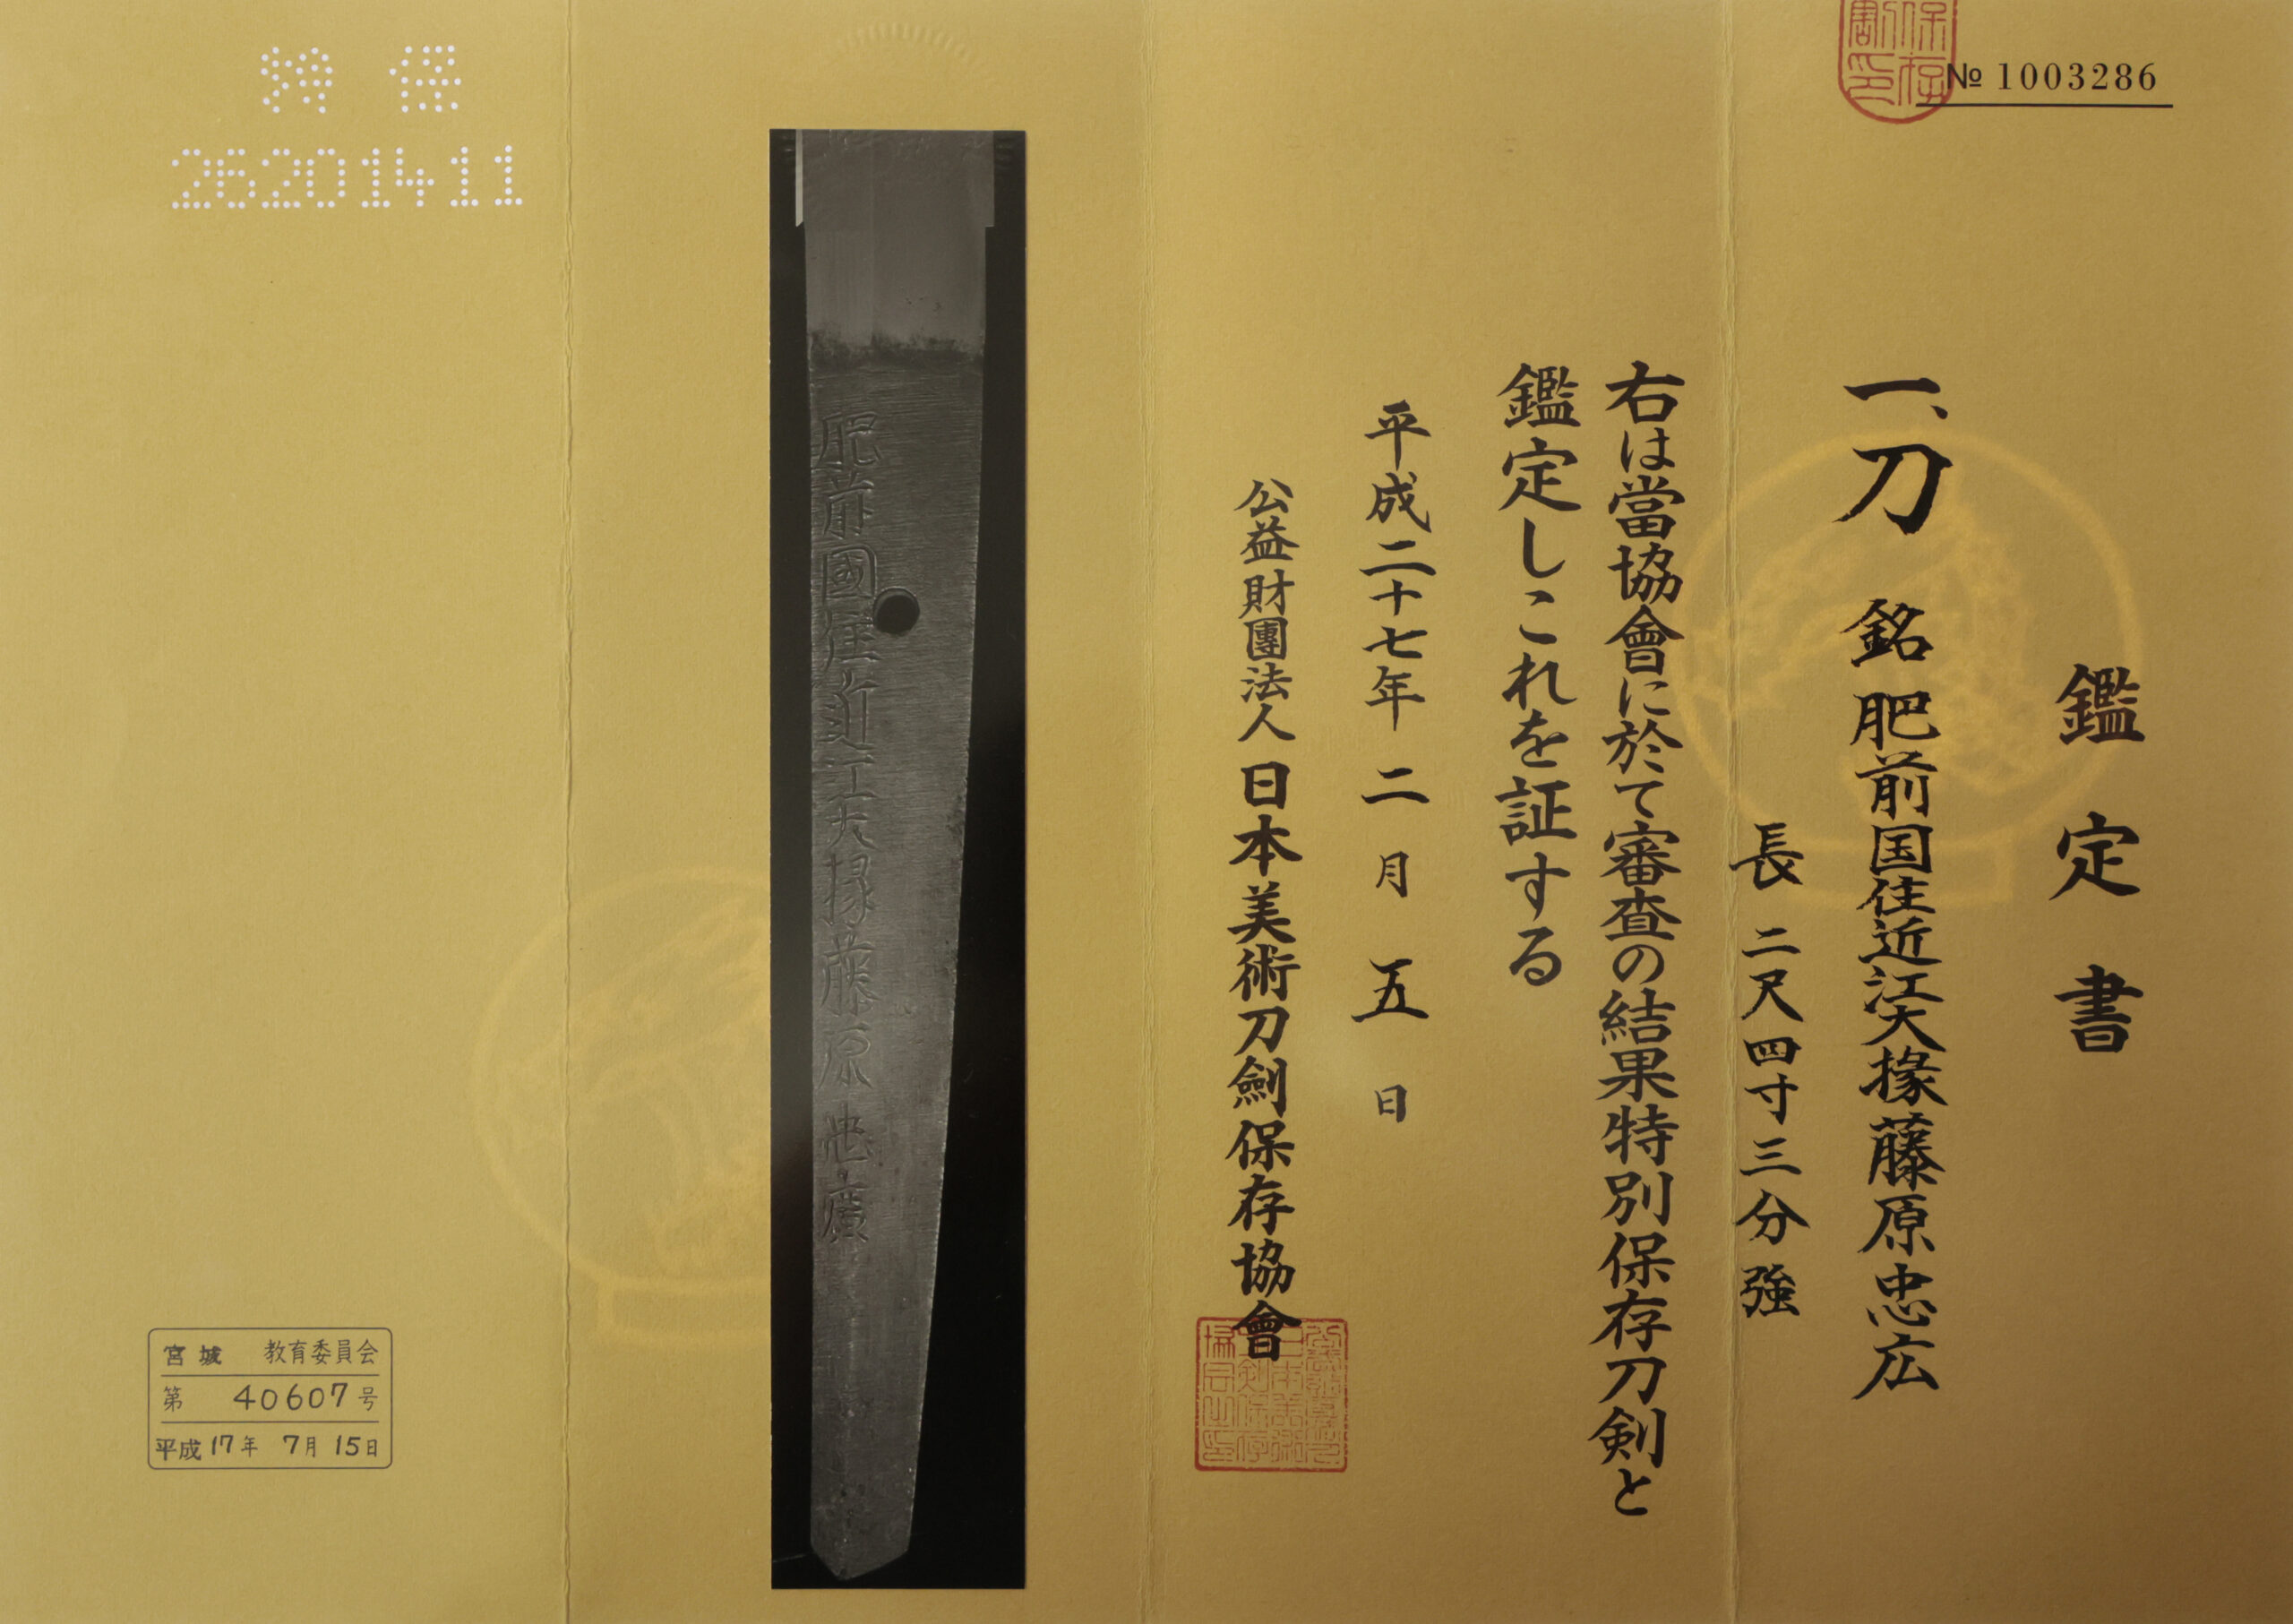 № 1003286
鑑定書
一、刀 銘 肥前国住近江大掾藤原忠広
長 二尺四寸三分強
右は當協會に於て審査の結果特別保存刀剣と
鑑定しこれを証する
平成二十七年 二月 五日
公益財團法人 日本美術刀劍保存協會
肥前國住近江大掾藤原忠廣
特 保
26201411
宮城 教育委員会
第 40607 号
平成 17年 7月 15日